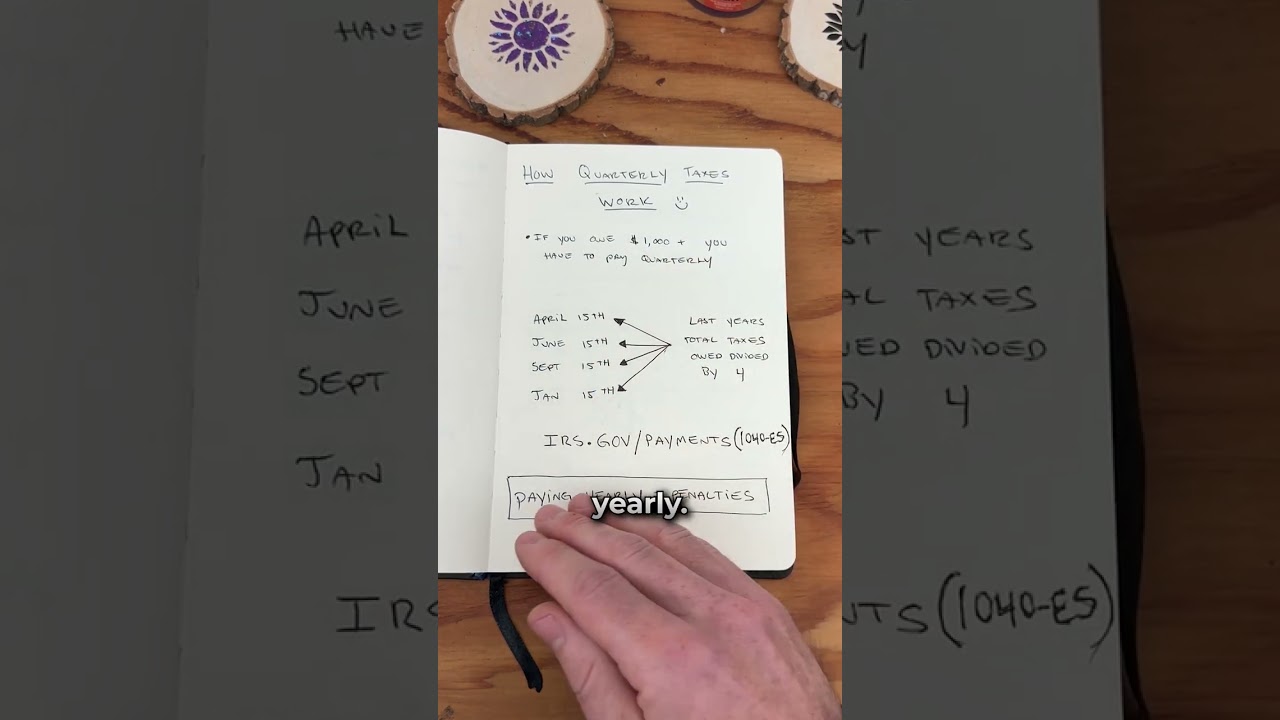 How Quarterly Taxes
Work
• If you owe $1,000 + you
have to pay quarterly
April 15th
June 15th
Sept 15th
Jan 15th
Last years
total taxes
owed divided
by 4
IRS.GOV/PAYMENTS (1040-ES)
Paying yearly Penalties
yearly.
Have
April
June
Sept
Jan
IRS.
y
st years
al taxes
ed divided
by 4
nts (1040-ES)